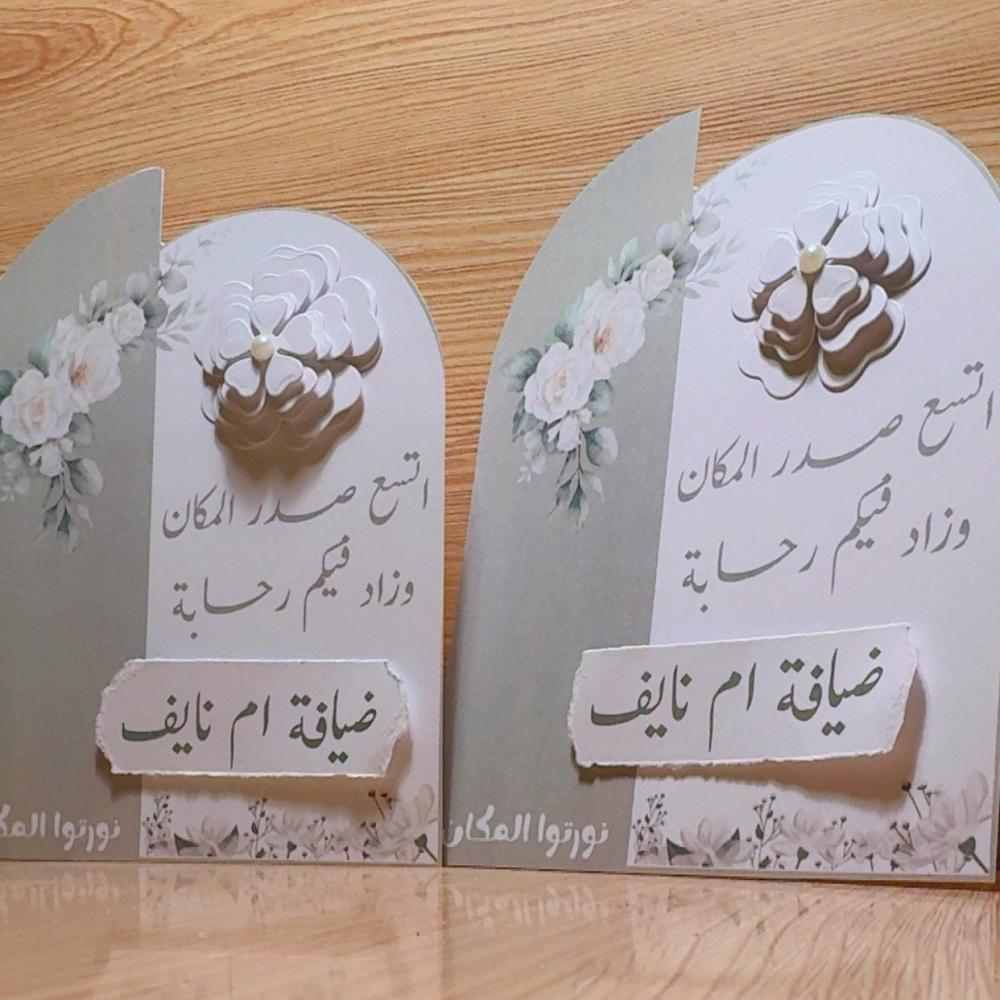 اتسع صدر المكان
وزاد فيكم رحابة
ضيافة ام نايف
نورتوا المكان
اتسع صدر المكان
وزاد فيكم رحابة
ضيافة ام نايف
نورتوا المك